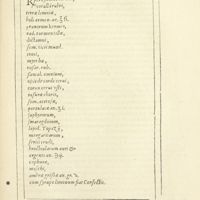 corallirubri,
terræ lemniæ,
boli armen. an. ʒ ß
granorum kermes,
rad. tormentillæ,
dictamni,
sem. citri mund.
croci,
myrrhæ,
rosar. rub.
santal. omnium,
ossis de corde cerui,
cornu cerui usti,
rasuræ eboris,
sem. acetosæ,
portulacæ an.
saphyrorum,
smaragdorum,
lapid.
margaritarum,
serici crudi,
bracteolarum auri
argenti an.
caphuræ,
moschi,
ambræ griseæ an. gr.
cum syrupo limonum fiat Confectio.